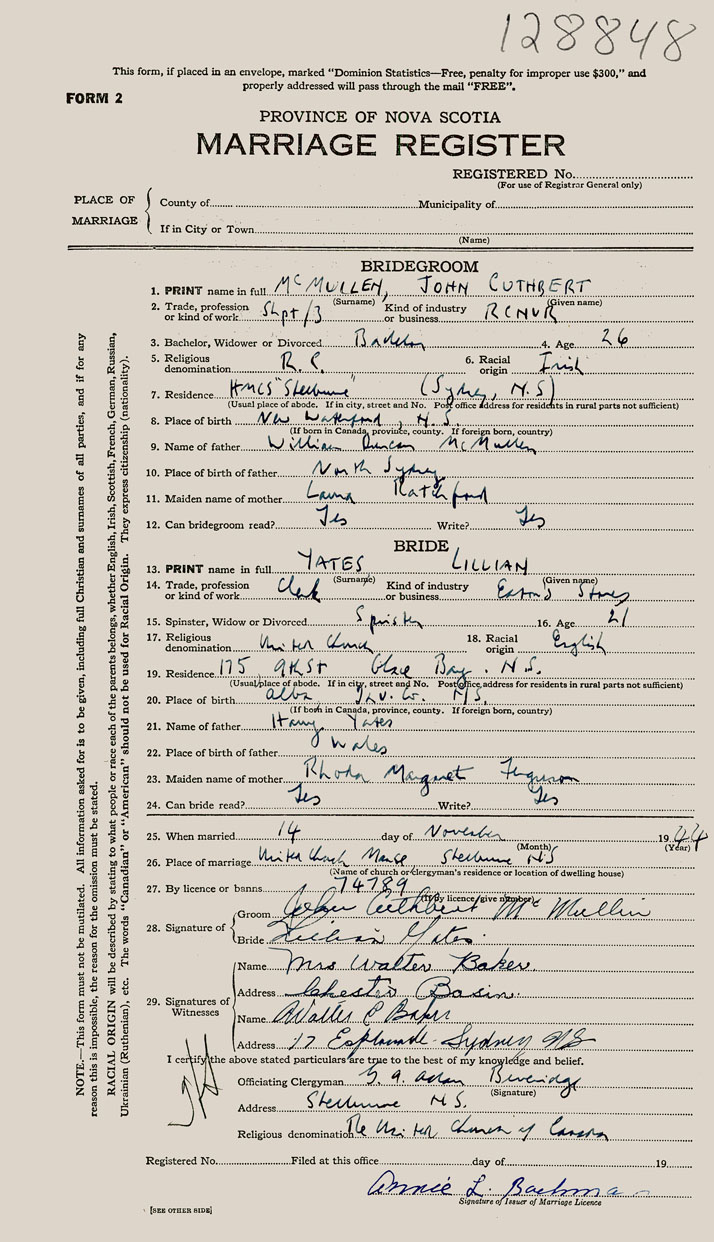 128848
This form, if placed in an envelope, marked "Dominion Statistics—Free, penalty for improper use $300," and
properly addressed will pass through the mail "FREE".
FORM 2
PROVINCE OF NOVA SCOTIA
MARRIAGE REGISTER
REGISTERED No.
(For use of Registrar General only)
PLACE OF MARRIAGE
County of Municipality of
If in City or Town
(Name)
BRIDEGROOM
1. PRINT name in full McMULLEN, JOHN CUTHBERT
(Surname) (Given name)
2. Trade, profession or kind of work Shpt/3 Kind of industry or business RCNVR
3. Bachelor, Widower or Divorced Bachelor 4. Age 26
5. Religious denomination R.C. 6. Racial origin Irish
7. Residence HMCS "Shelburne" (Sydney, N.S)
(Usual place of abode. If in city, street and No. Post office address for residents in rural parts not sufficient)
8. Place of birth New Waterford, N.S.
(If born in Canada, province, county. If foreign born, country)
9. Name of father William Duncan McMullen
10. Place of birth of father North Sydney
11. Maiden name of mother Laura Ratchford
12. Can bridegroom read? Yes Write? Yes
BRIDE
13. PRINT name in full YATES LILLIAN
(Surname) (Given name)
14. Trade, profession or kind of work Clerk Kind of industry or business Eatons Stores
15. Spinster, Widow or Divorced Spinster 16. Age 21
17. Religious denomination United Church 18. Racial origin English
19. Residence 175 9th St Glace Bay. N.S.
(Usual place of abode. If in city, street and No. Post office address for residents in rural parts not sufficient)
20. Place of birth N.S.
(If born in Canada, province, county. If foreign born, country)
21. Name of father Harry Yates
22. Place of birth of father Wales
23. Maiden name of mother Rhoda Margaret Ferguson
24. Can bride read? Yes Write? Yes
25. When married 14 day of November 1944
(Month) (Year)
26. Place of marriage United Church Manse Shelburne N.S
(Name of church or clergyman's residence or location of dwelling house)
27. By licence or banns 74789
(If by licence give number)
28. Signature of
Groom John Cuthbert McMullin
Bride Lillian Yates.
29. Signatures of Witnesses
Name Mrs Walter Baker.
Address Chester Basin.
Name Walter P Baker
Address 17 Esplanade - Sydney NS
I certify the above stated particulars are true to the best of my knowledge and belief.
Officiating Clergyman Beveridge
(Signature)
Address Shelburne N.S.
Religious denomination The United Church of Canada
Registered No. Filed at this office day of 19
Annie L.
Signature of Issuer of Marriage Licence
[SEE OTHER SIDE]
NOTE.—This form must not be mutilated. All information asked for is to be given, including full Christian and surnames of all parties, and if for any
reason this is impossible, the reason for the omission must be stated.
RACIAL ORIGIN will be described by stating to what people or race each of the parents belongs, whether English, Irish, Scottish, French, German, Russian,
Ukrainian (Ruthenian), etc. The words "Canadian" or "American" should not be used for Racial Origin. They express citizenship (nationality).